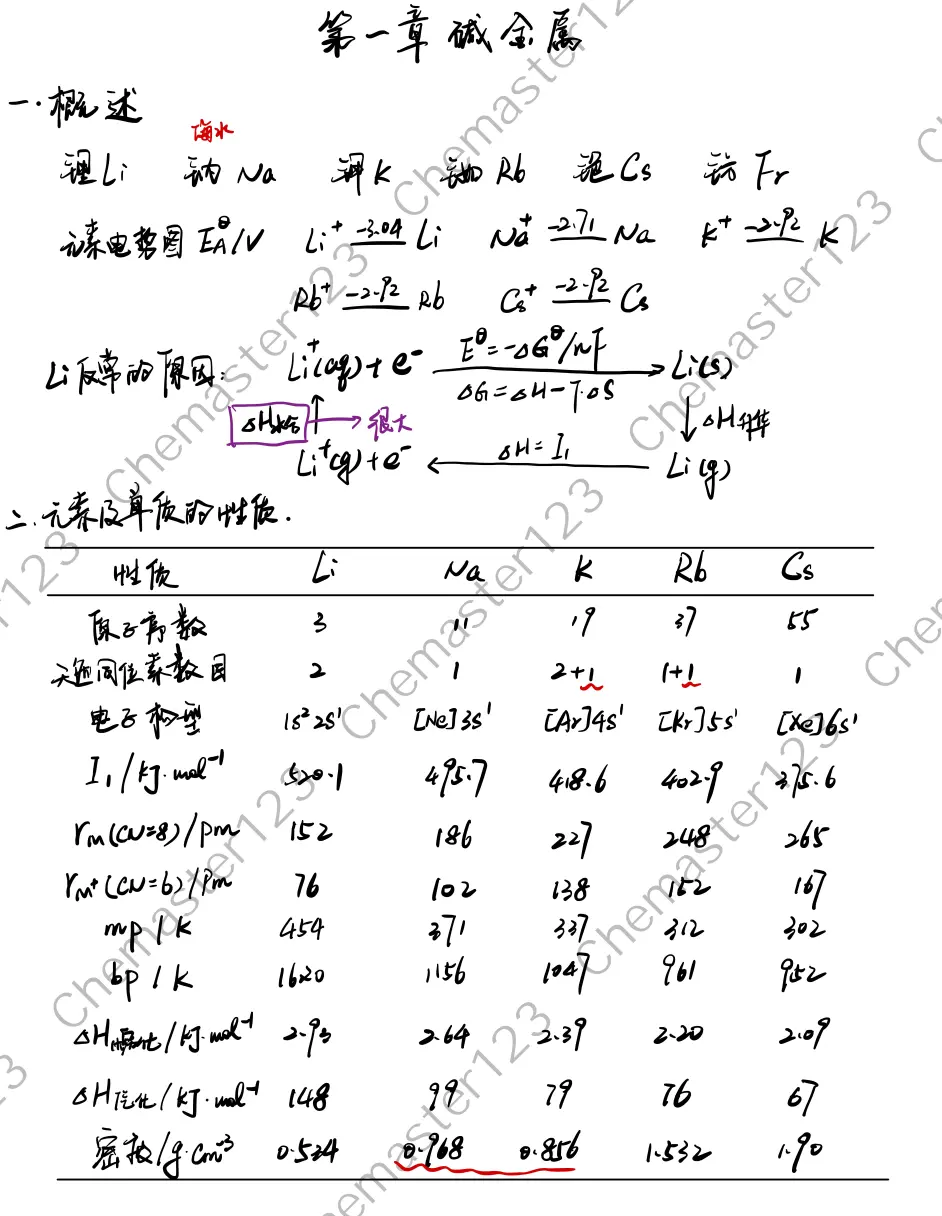 第一章 碱金属
一.概述
海水
锂Li 钠Na 钾K 铷Rb 铯Cs 钫Fr
元素电势图 E_A^θ/V Li⁺ —-3.04— Li Na⁺ —-2.71— Na K⁺ —-2.92— K
Rb⁺ —-2.92— Rb Cs⁺ —-2.92— Cs
Li反常的原因: Li⁺(aq)+e⁻ E^θ=-ΔG^θ/nF → Li(s)
ΔG=ΔH-T·ΔS
ΔH水合 → 很大 ↓ΔH升华
Li⁺(g)+e⁻ ← ΔH=I₁ Li(g)
二.元素及单质的性质.
性质 Li Na K Rb Cs
原子序数 3 11 19 37 55
天然同位素数目 2 1 2+1 1+1 1
电子构型 1s²2s¹ [Ne]3s¹ [Ar]4s¹ [Kr]5s¹ [Xe]6s¹
I₁/kJ·mol⁻¹ 520.1 495.7 418.6 402.9 375.6
r_M(CN=8)/pm 152 186 227 248 265
r_M⁺(CN=6)/pm 76 102 138 152 167
mp/K 454 371 337 312 302
bp/K 1620 1156 1047 961 952
ΔH熔化/kJ·mol⁻¹ 2.93 2.64 2.39 2.20 2.09
ΔH汽化/kJ·mol⁻¹ 148 99 79 76 67
密度/g·cm⁻³ 0.534 0.968 0.856 1.532 1.90
Chemaster123